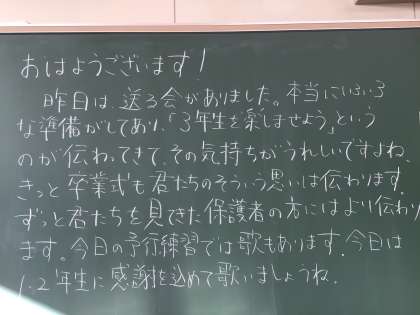 おはようございます!
昨日は、送る会がありました。本当にいろいろ
な準備がしてあり、「3年生を楽しませよう」という
のが伝わってきて、その気持ちがうれしいですよね。
きっと卒業式も君たちのそういう思いは伝わります。
ずっと君たちを見てきた保護者の方にはより伝わり
ます。今日の予行練習では歌もあります。今日は
1.2年生に感謝を込めて歌いましょうね。